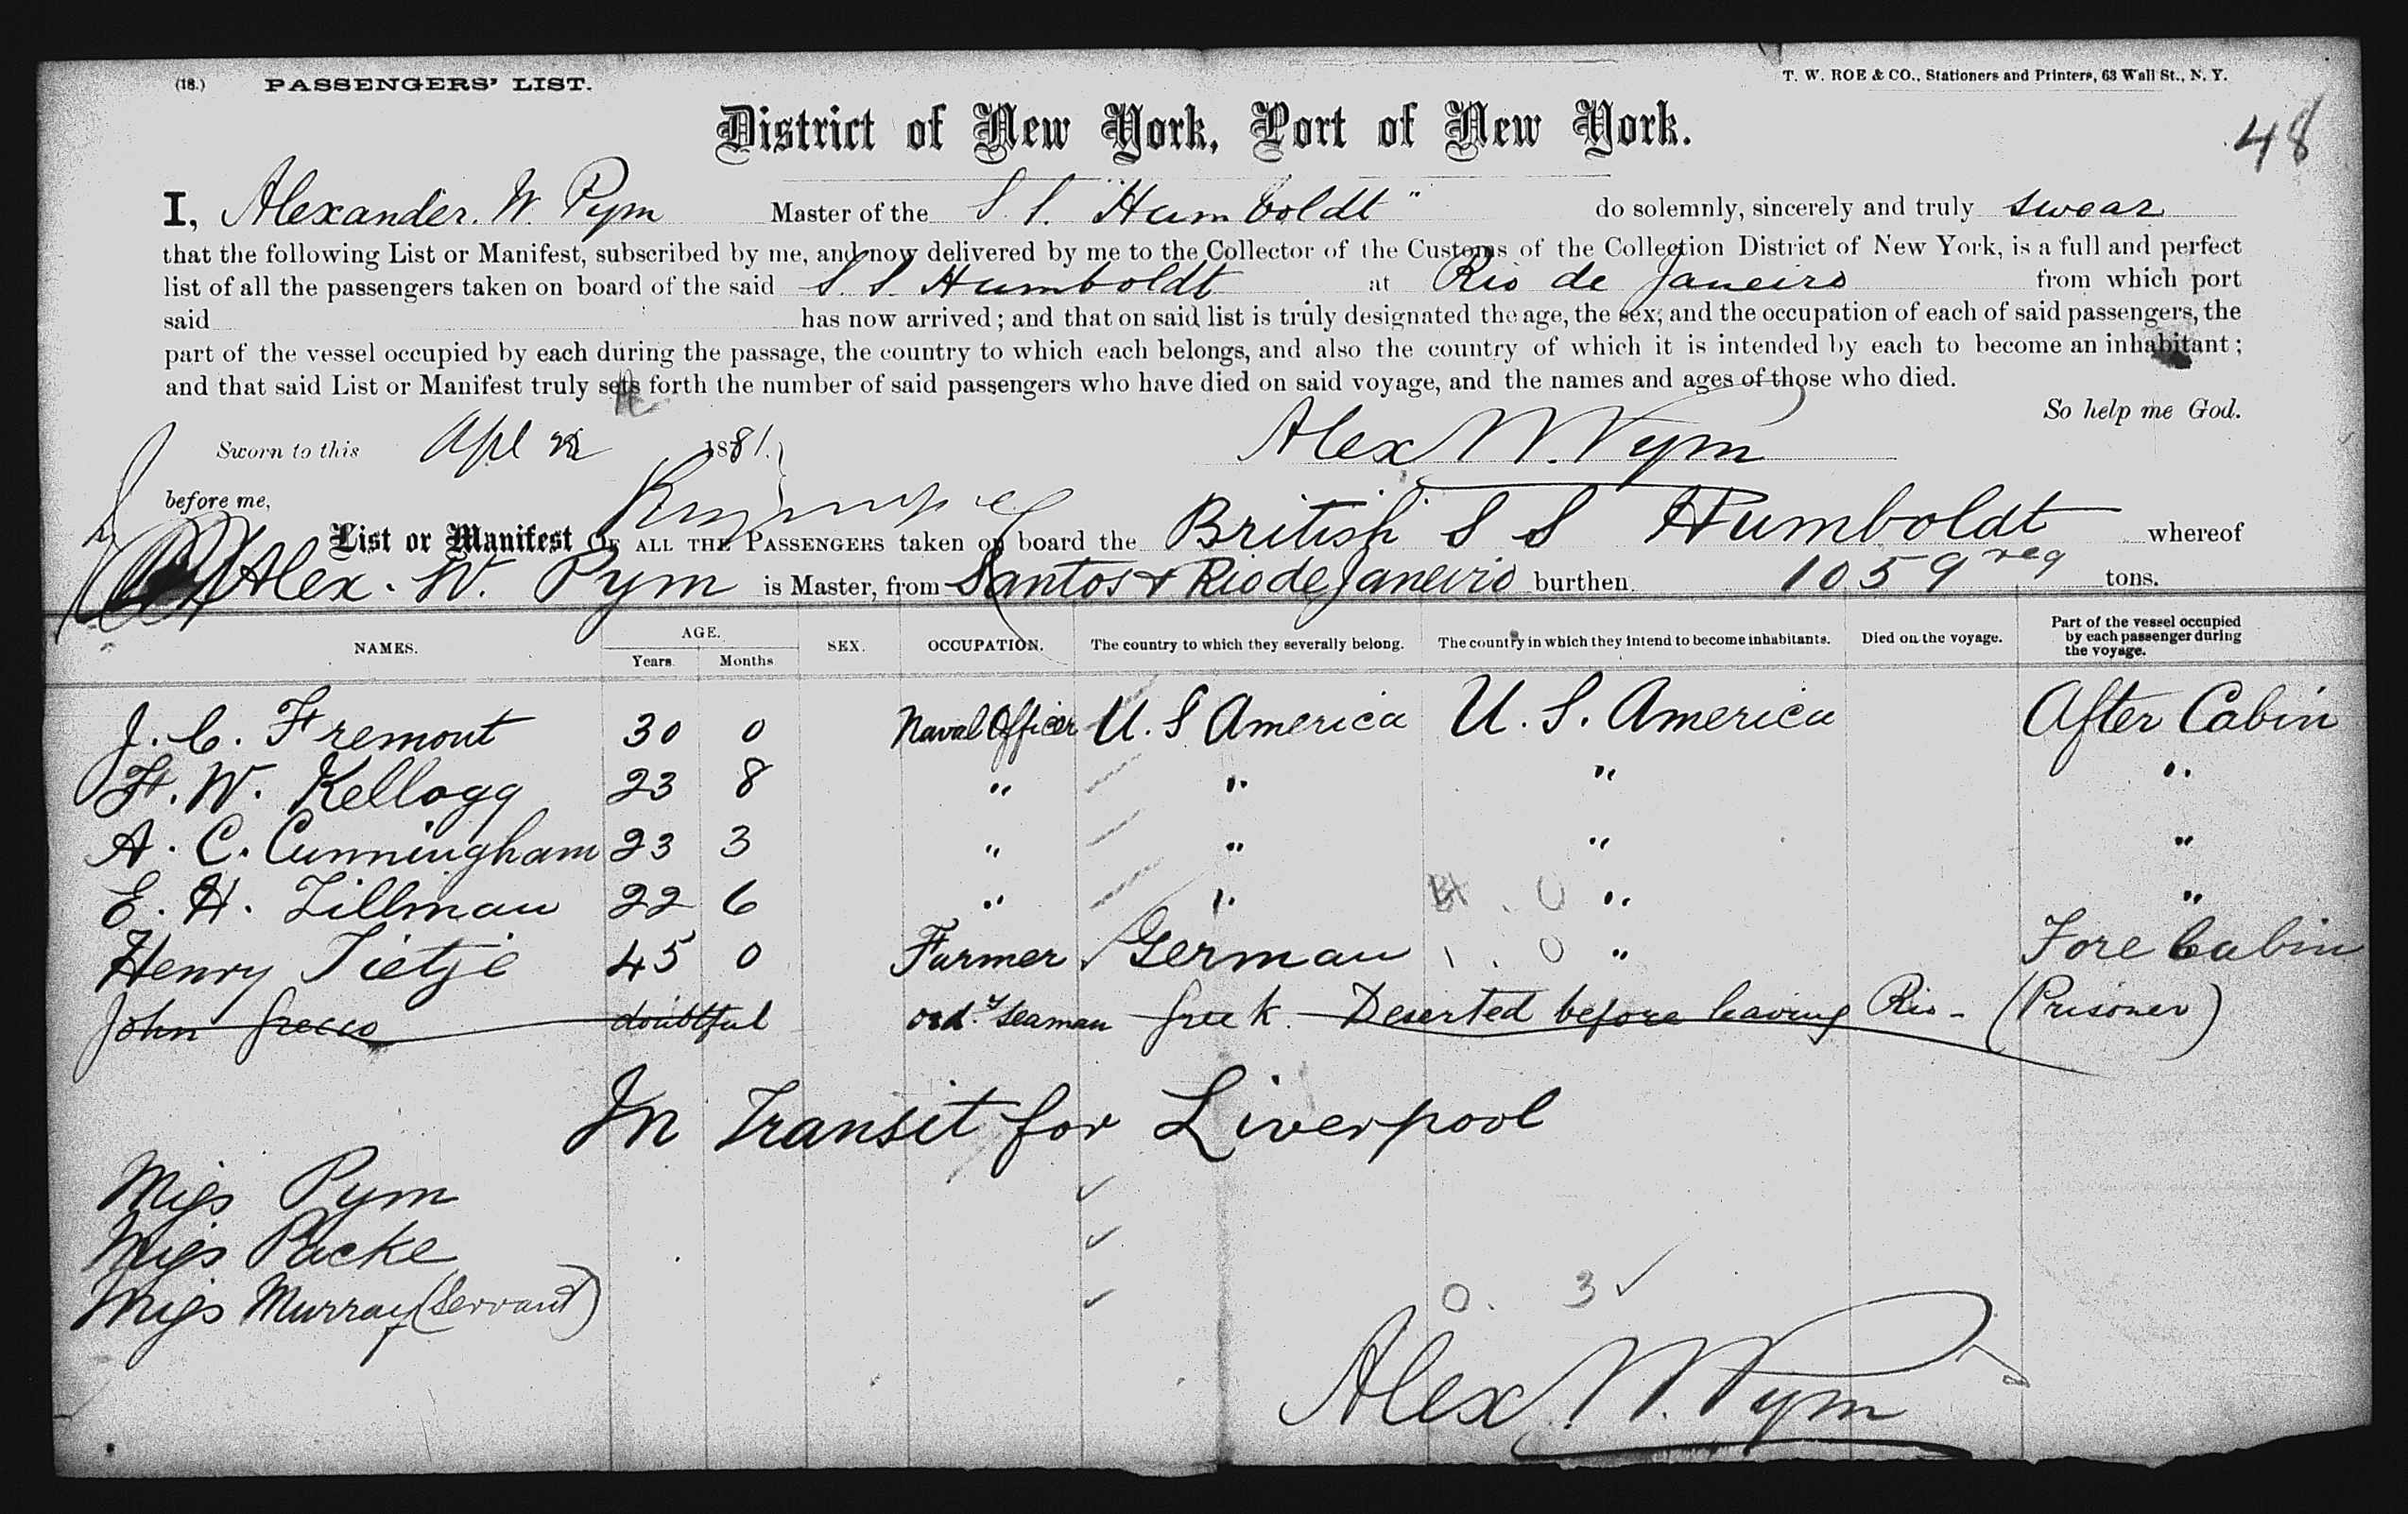 (18.) PASSENGERS' LIST.
T. W. ROE & CO., Stationers and Printers, 63 Wall St., N. Y.
District of New York, Port of New York.
48
I, Alexander. W. Pym Master of the S. S. Humboldt" do solemnly, sincerely and truly swear
that the following List or Manifest, subscribed by me, and now delivered by me to the Collector of the Customs of the Collection District of New York, is a full and perfect
list of all the passengers taken on board of the said S. S. Humboldt at Rio de Janeiro from which port
said has now arrived; and that on said list is truly designated the age, the sex, and the occupation of each of said passengers, the
part of the vessel occupied by each during the passage, the country to which each belongs, and also the country of which it is intended by each to become an inhabitant;
and that said List or Manifest truly sets forth the number of said passengers who have died on said voyage, and the names and ages of those who died.
So help me God.
Sworn to this Apl 1881. Alex W. Pym
before me,
List or Manifest OF ALL THE PASSENGERS taken on board the British S S Humboldt whereof
Alex. W. Pym is Master, from Santos & Rio de Janeiro burthen 1059 reg tons.
NAMES. AGE. Years Months SEX. OCCUPATION. The country to which they severally belong. The country in which they intend to become inhabitants. Died on the voyage. Part of the vessel occupied by each passenger during the voyage.
J. C. Fremont 30 0 Naval Officer U. S America U. S. America After Cabin
F. W. Kellogg 23 8 " " " "
A. C. Cunningham 23 3 " " " "
E. H. Tillman 22 6 " " " "
Henry Tietje 45 0 Farmer German " Fore Cabin
John Grecco doubtful ord.y Seaman Greek. Deserted before leaving Rio - (Prisoner)
In Transit for Liverpool
Miss Pym
Miss Packe
Miss Murray (Servant)
0. 3 ✓
Alex. W. Pym